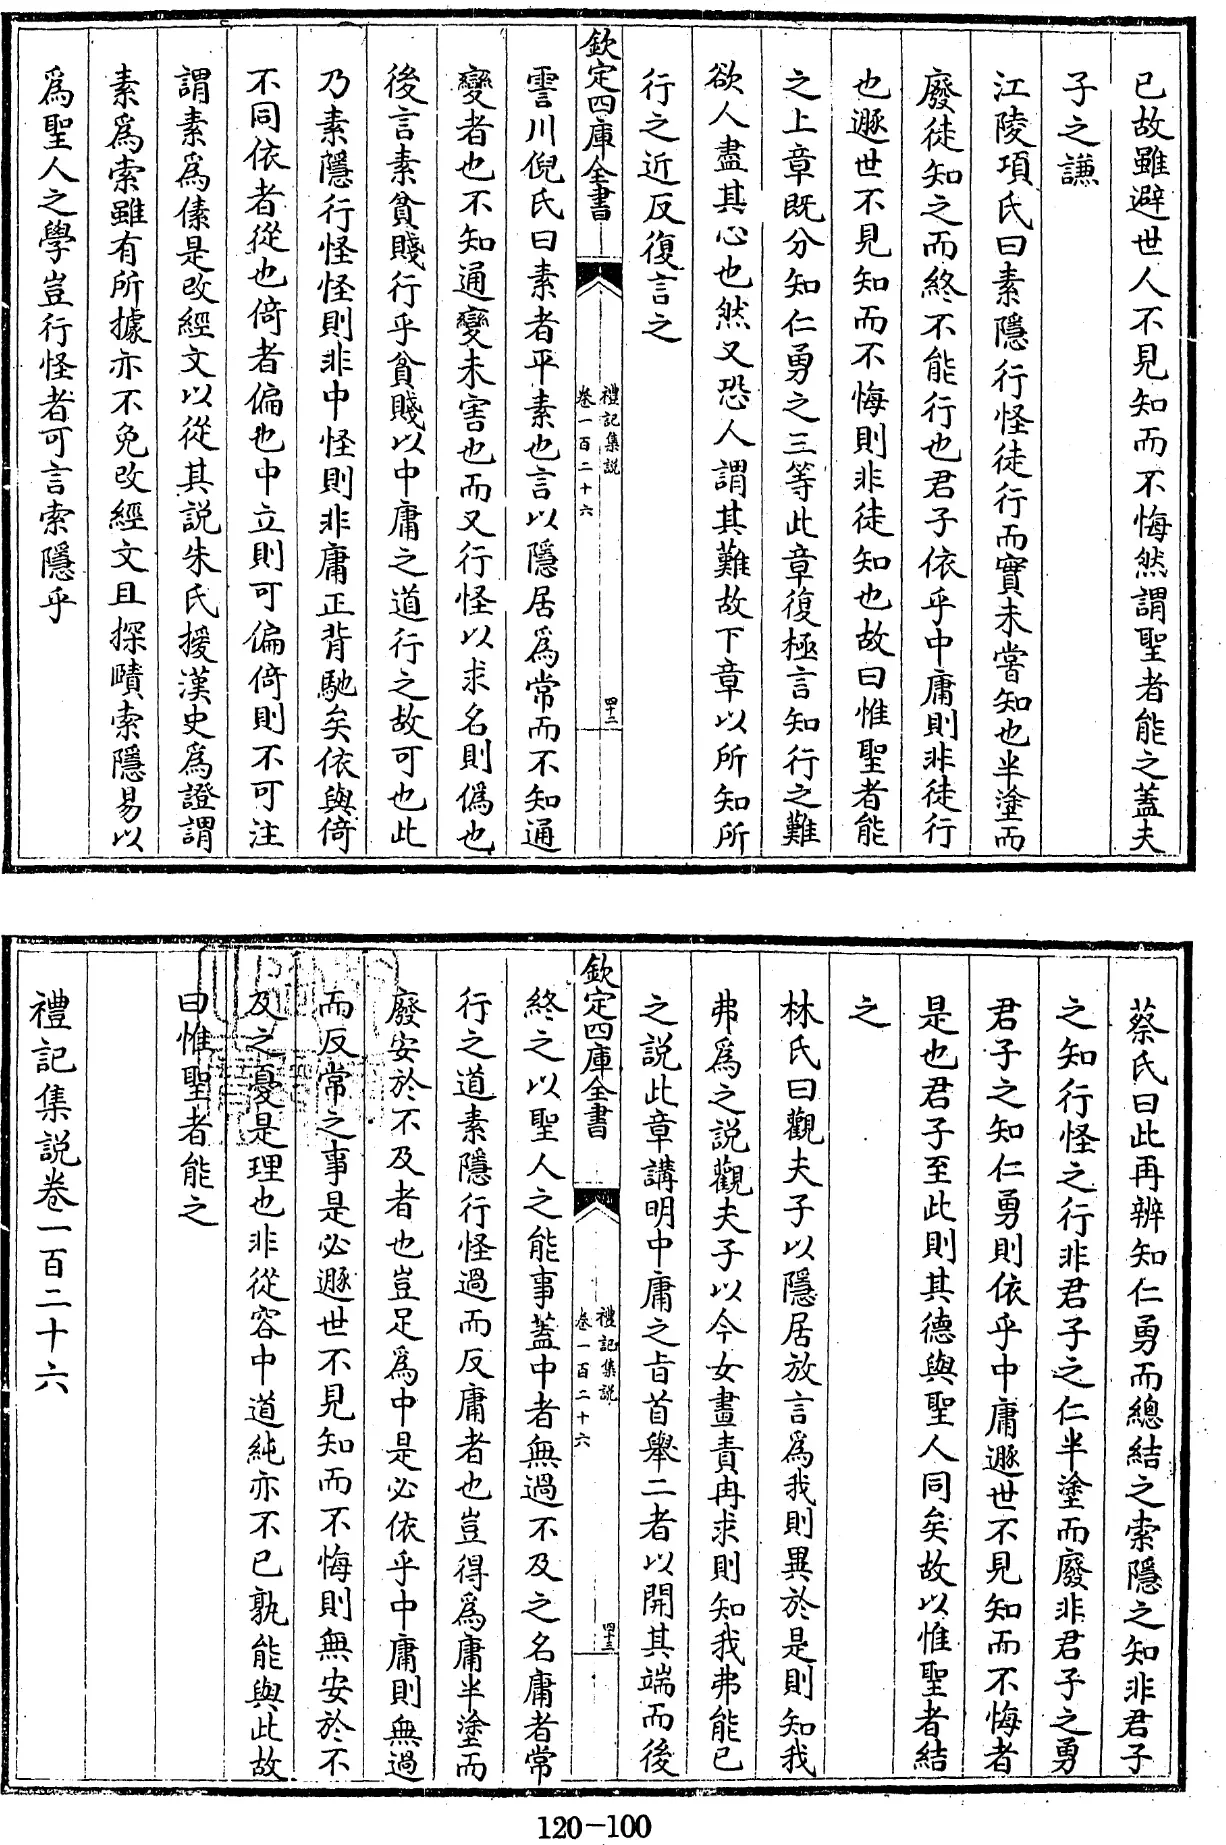 已故雖避世人不見知而不悔然謂聖者能之蓋夫
子之謙
江陵項氏曰素隱行怪徒行而實未嘗知也半塗而
廢徒知之而終不能行也君子依乎中庸則非徒行
也遯世不見知而不悔則非徒知也故曰惟聖者能
之上章既分知仁勇之三等此章復極言知行之難
欲人盡其心也然又恐人謂其難故下章以所知所
行之近反復言之
欽定四庫全書
禮記集説
卷一百二十六
四十二
霅川倪氏曰素者平素也言以隱居為常而不知通
變者也不知通變未害也而又行怪以求名則僞也
後言素貧賤行乎貧賤以中庸之道行之故可也此
乃素隱行怪怪則非中怪則非庸正背馳矣依與倚
不同依者從也倚者偏也中立則可偏倚則不可注
謂素為傃是改經文以從其説朱氏援漢史為證謂
素為索雖有所據亦不免改經文且探賾索隱易以
為聖人之學豈行怪者可言索隱乎
蔡氏曰此再辨知仁勇而總結之索隱之知非君子
之知行怪之行非君子之仁半塗而廢非君子之勇
君子之知仁勇則依乎中庸遯世不見知而不悔者
是也君子至此則其德與聖人同矣故以惟聖者結
之
林氏曰觀夫子以隱居放言為我則異於是則知我
弗為之説觀夫子以今女畫責冉求則知我弗能已
之説此章講明中庸之旨首舉二者以開其端而後
欽定四庫全書
禮記集説
卷一百二十六
四十三
終之以聖人之能事蓋中者無過不及之名庸者常
行之道素隱行怪過而反庸者也豈得為庸半塗而
廢安於不及者也豈足為中是必依乎中庸則無過
而反常之事是必遯世不見知而不悔則無安於不
及之憂是理也非從容中道純亦不已孰能與此故
曰惟聖者能之
禮記集説卷一百二十六
120-100